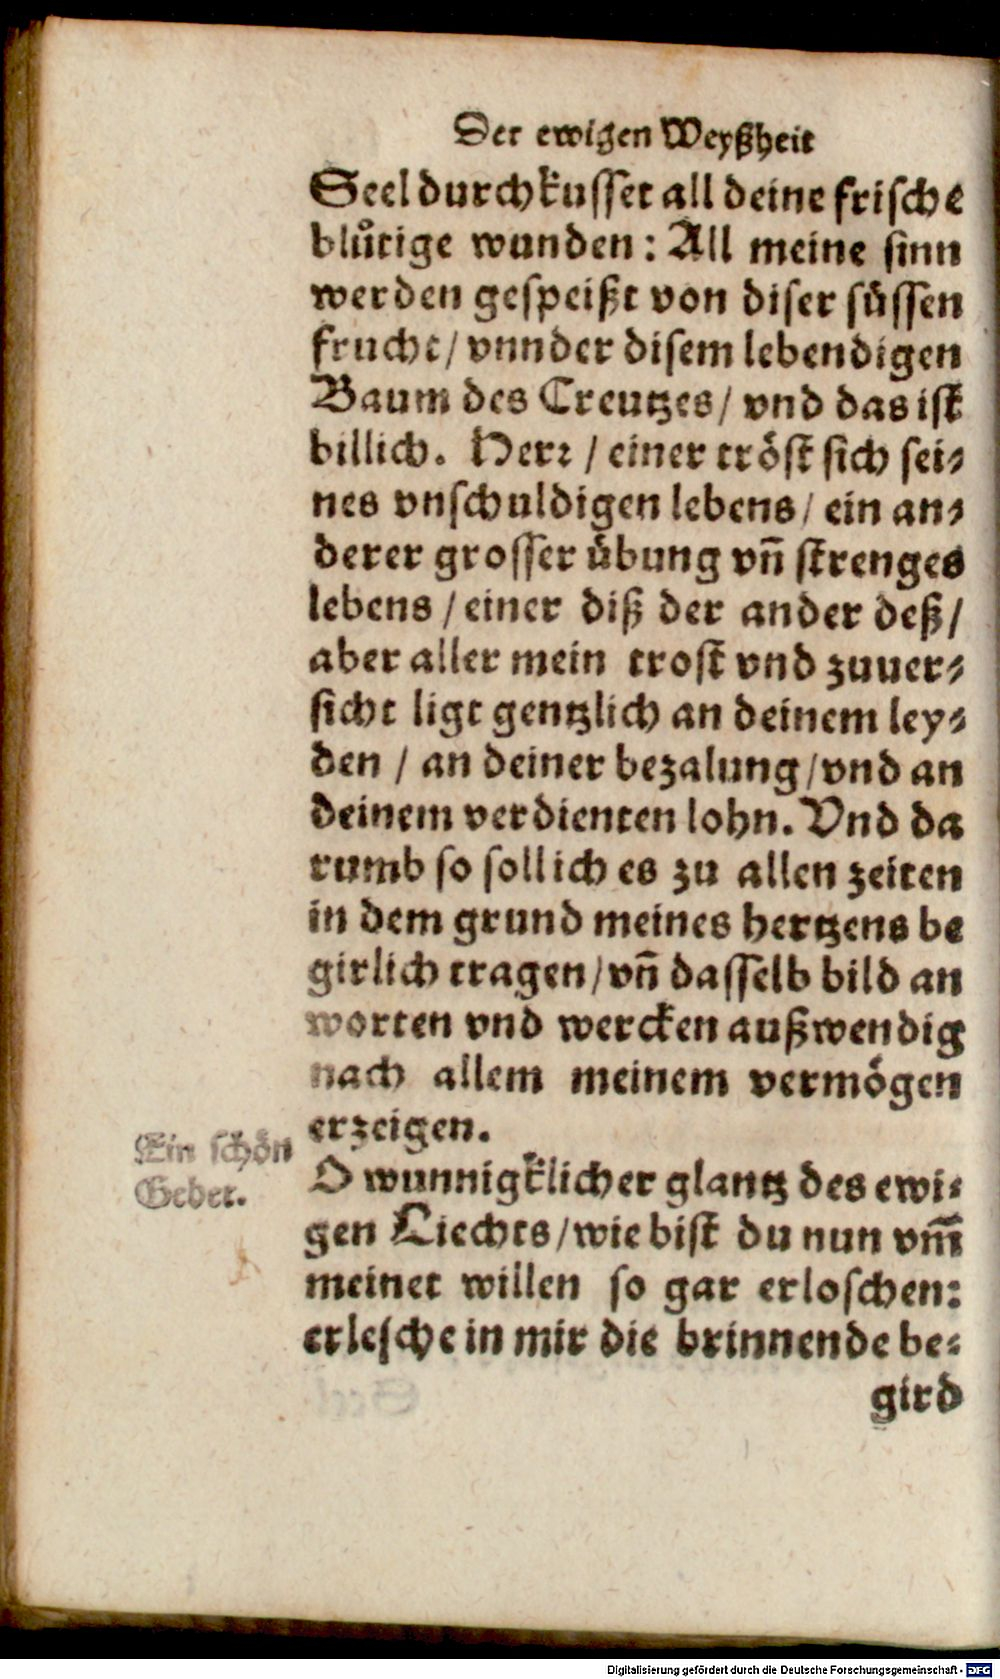 Der ewigen Weyßheit
Seel durchkusset all deine frische
bluͦtige wunden: All meine sinn
werden gespeißt von diser süssen
frucht/ vnnder disem lebendigen
Baum des Creutzes/ vnd das ist
billich. Herr / einer tröst sich sei⸗
nes vnschuldigen lebens/ ein an⸗
derer grosser übung vñ strenges
lebens / einer diß der ander deß/
aber aller mein trost vnd zuuer⸗
sicht ligt gentzlich an deinem ley⸗
den / an deiner bezalung/vnd an
deinem verdienten lohn. Vnd da
rumb so soll ich es zu allen zeiten
in dem grund meines hertzens be
girlich tragen/vñ dasselb bild an
worten vnd wercken außwendig
nach allem meinem vermögen
erzeigen.
Ein schön
Gebet.
O wunnigklicher glantz des ewi⸗
gen Liechts/wie bist du nun vm̃
meinet willen so gar erloschen:
erlesche in mir die brinnende be⸗
gird
Digitalisierung gefördert durch die Deutsche Forschungsgemeinschaft - DFG